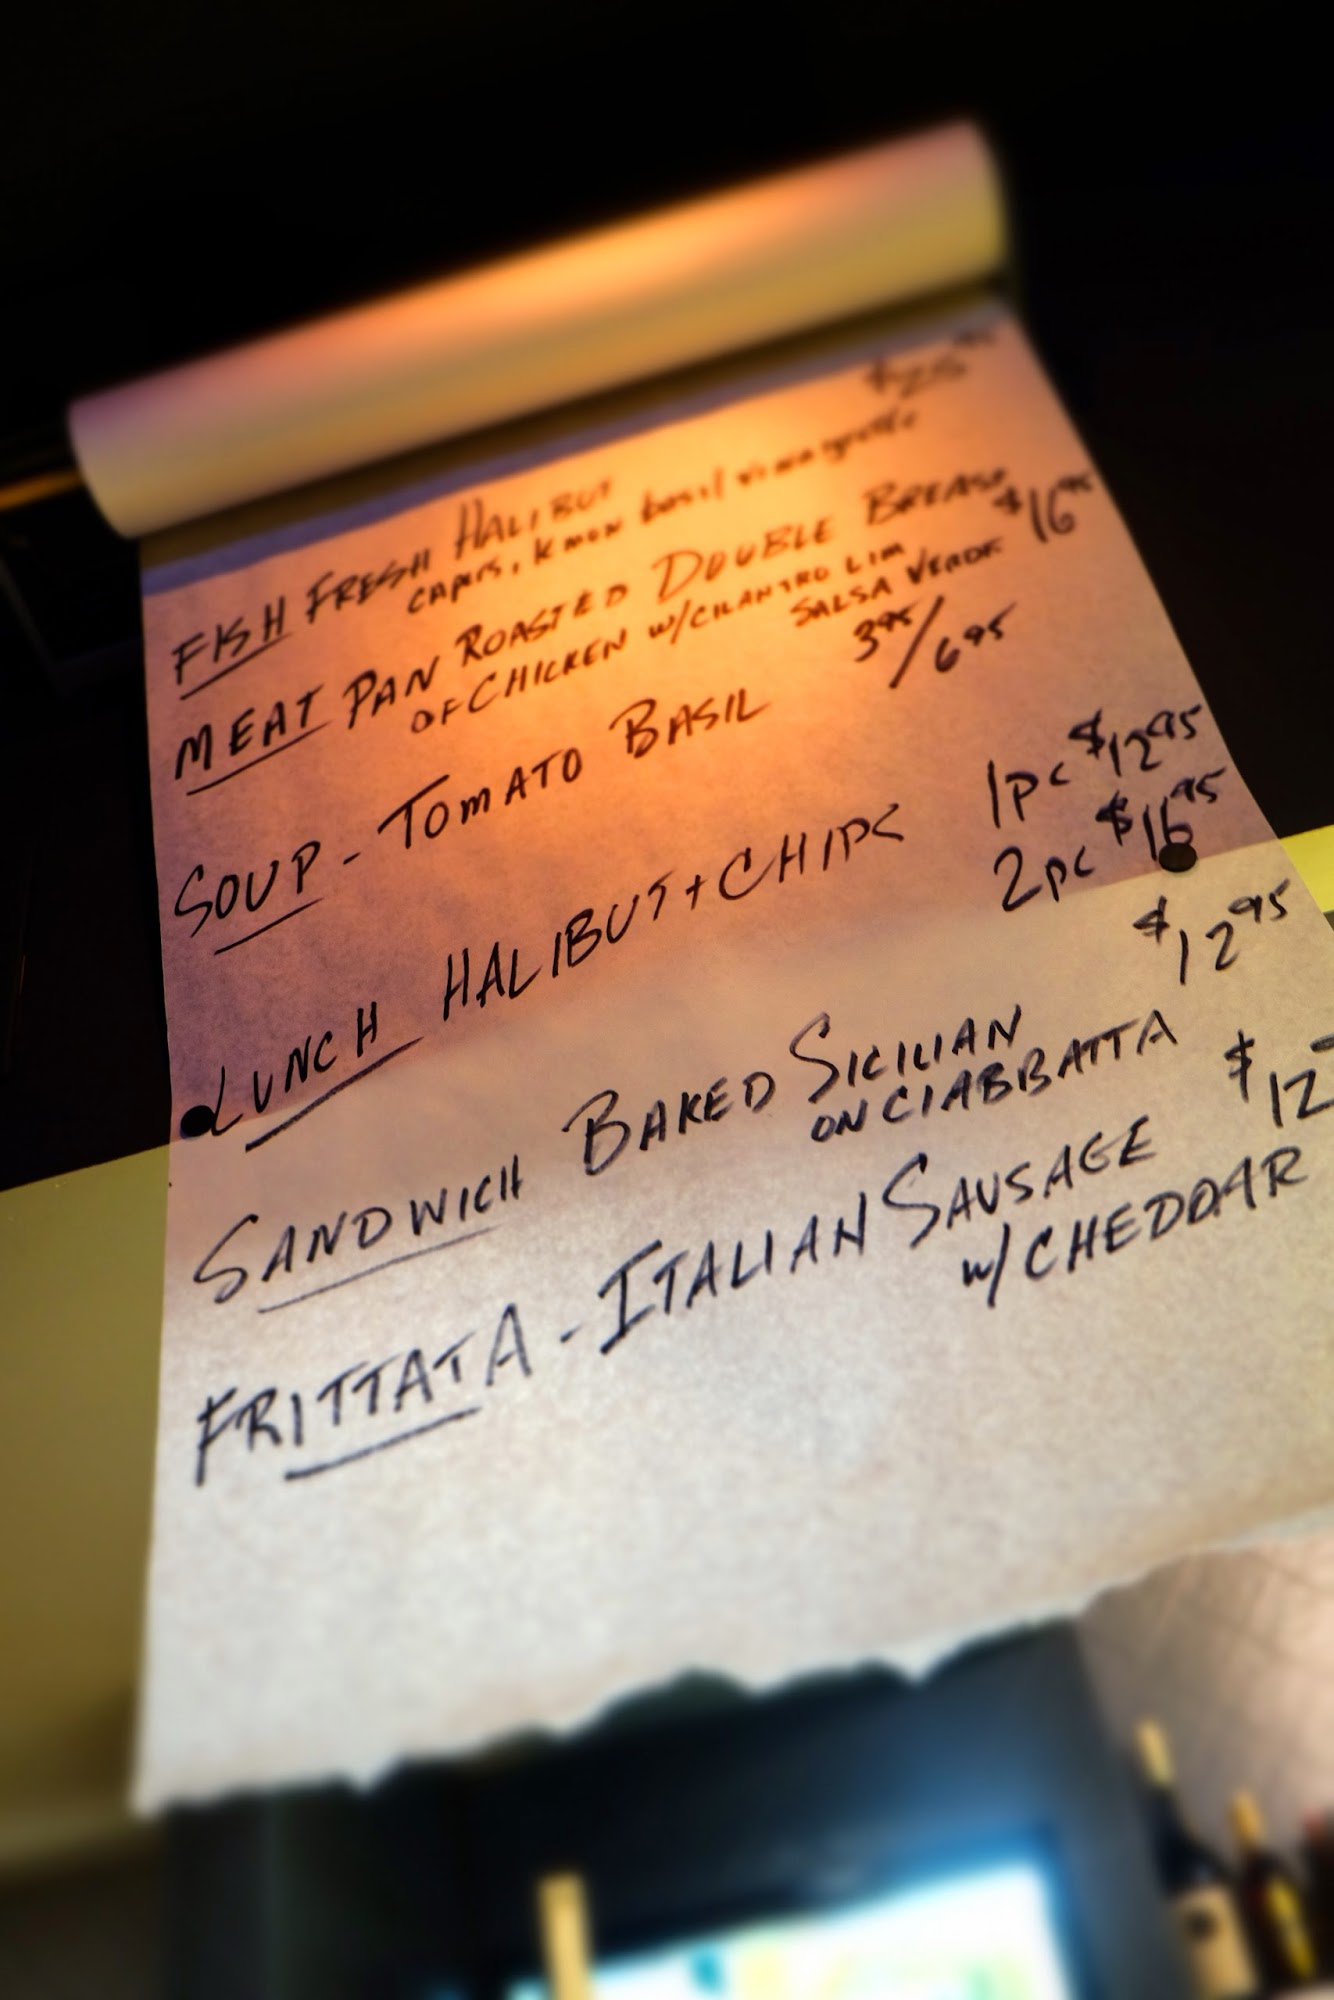 FISH FRESH HALIBUT
capers, lemon basil vinaigrette
MEAT PAN ROASTED DOUBLE BREAST $16.95
OF CHICKEN W/CILANTRO LIM
SALSA VERDE
SOUP - TOMATO BASIL 3.95/6.95
LUNCH HALIBUT + CHIPS 1pc $12.95
2pc $16.95
SANDWICH BAKED SICILIAN $12.95
ON CIABBATTA
FRITTATA - ITALIAN SAUSAGE $12
W/ CHEDDAR